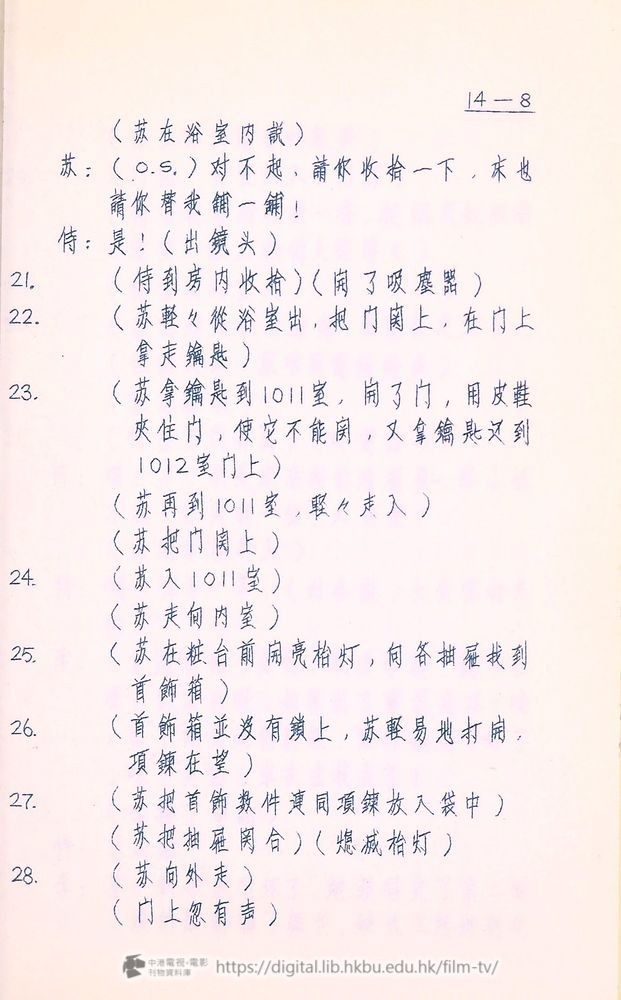 14-8
(苏在浴室内説)
苏:(O.S.)对不起、請你收拾一下，床也
請你替我鋪一鋪!
侍:是!(出鏡头)
21. (侍到房内收拾)(開了吸塵器)
22. (苏輕々從浴室出，把门関上，在门上
拿走鑰匙)
23. (苏拿鑰匙到1011室，開了门，用皮鞋
夾住门，使它不能関，又拿鑰匙返到
1012室门上)
(苏再到1011室，輕々走入)
(苏把门関上)
24. (苏入1011室)
(苏走向内室)
25. (苏在粧台前開亮枱灯，向各抽屜找到
首飾箱)
26. (首飾箱並没有鎖上，苏輕易地打開，
項鍊在望)
27. (苏把首飾数件連同項鍊放入袋中)
(苏把抽屜関合)(熄滅枱灯)
28. (苏向外走)
(门上忽有声)
中港電視·電影
刊物資料庫
https://digital.lib.hkbu.edu.hk/film-tv/